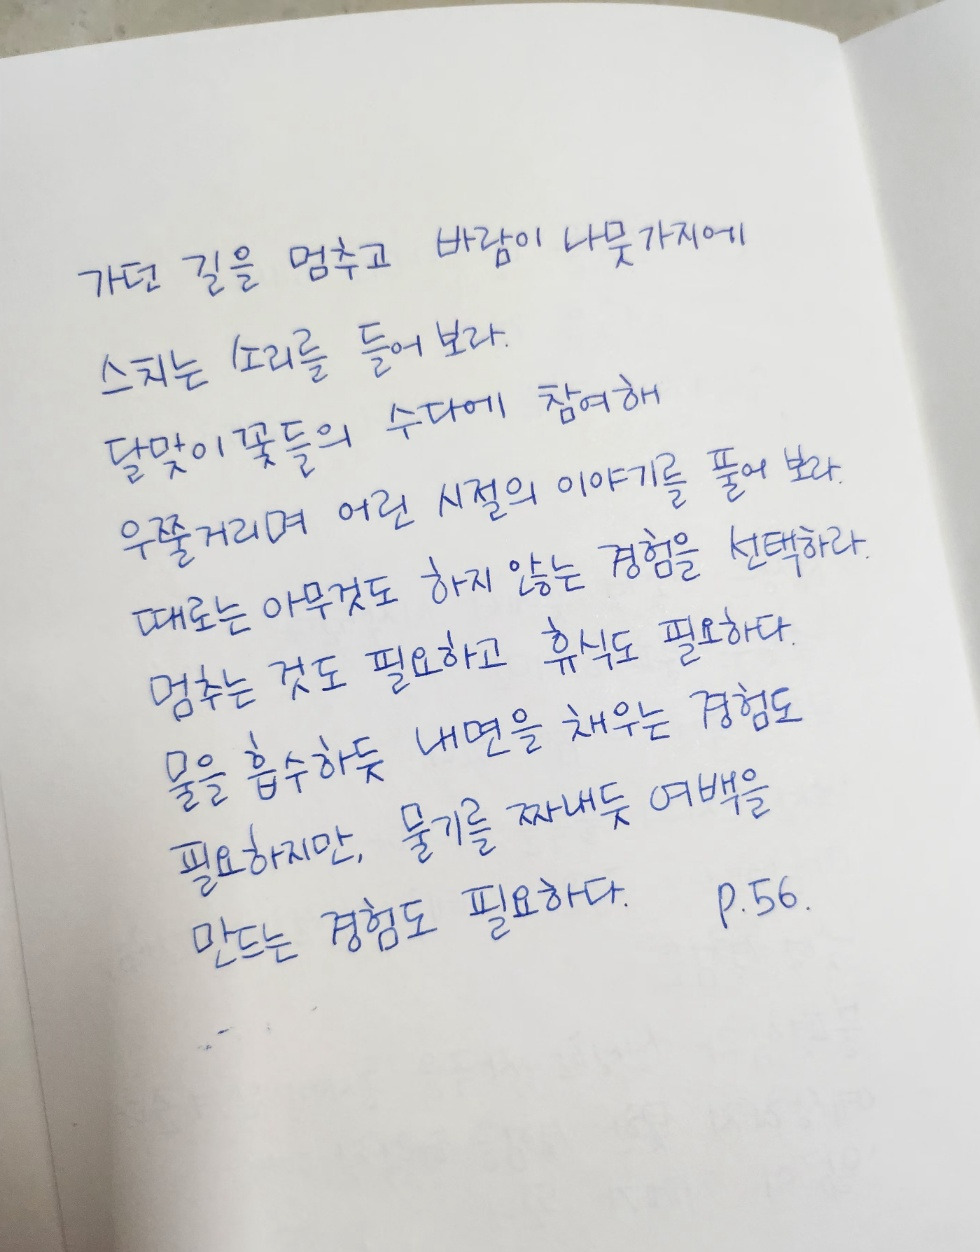 가던 길을 멈추고 바람이 나뭇가지에
스치는 소리를 들어 보라.
달맞이꽃들의 수다에 참여해
우쭐거리며 어린 시절의 이야기를 풀어 보라.
때로는 아무것도 하지 않는 경험을 선택하라.
멈추는 것도 필요하고 휴식도 필요하다.
물을 흡수하듯 내면을 채우는 경험도
필요하지만, 물기를 짜내듯 여백을
만드는 경험도 필요하다. p.56.